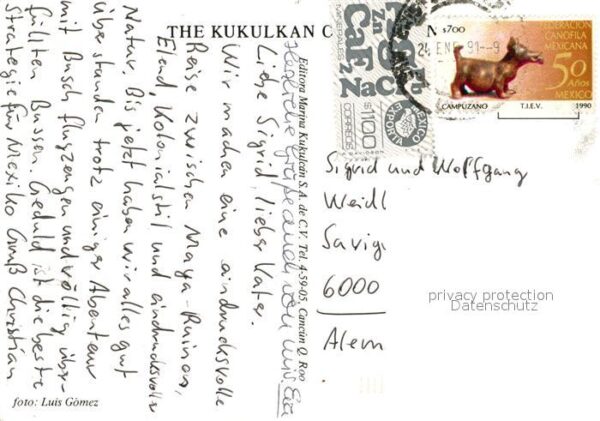 THE KUKULKAN C
N
Liebe Sigrid, lieber Vater.
Wir machen eine eindrucksvolle
Reise zwischen Maya-Ruinen,
Elend, Kolonialstil und eindrucksvoller
Natur. Bis jetzt haben wir alles gut
überstanden trotz einiger Abenteuer
mit Buschflugzeugen und völlig über-
füllten Bussen. Geduld ist die beste
Strategie für Mexiko Gruß Christian
Herzliche Grüße auch von
Editora Marina Kukulcain S.A. de C.V. Tel. 4-59-05, Cancún Q. Roo
foto: Luis Gömez
MINERALES
Zn
CaF
NaC
Pb
$1100
CORREOS
MEXICO
EXPORTA
24 ENE 91 - 9
$700
FEDERACION
CANOFILA
MEXICANA
50
Años
MEXICO
CAMPUZANO
T.I.E.V.
1990
Sigrid und Wolfgang
Weidl
Savig
6000
Alem
privacy protection
Datenschutz